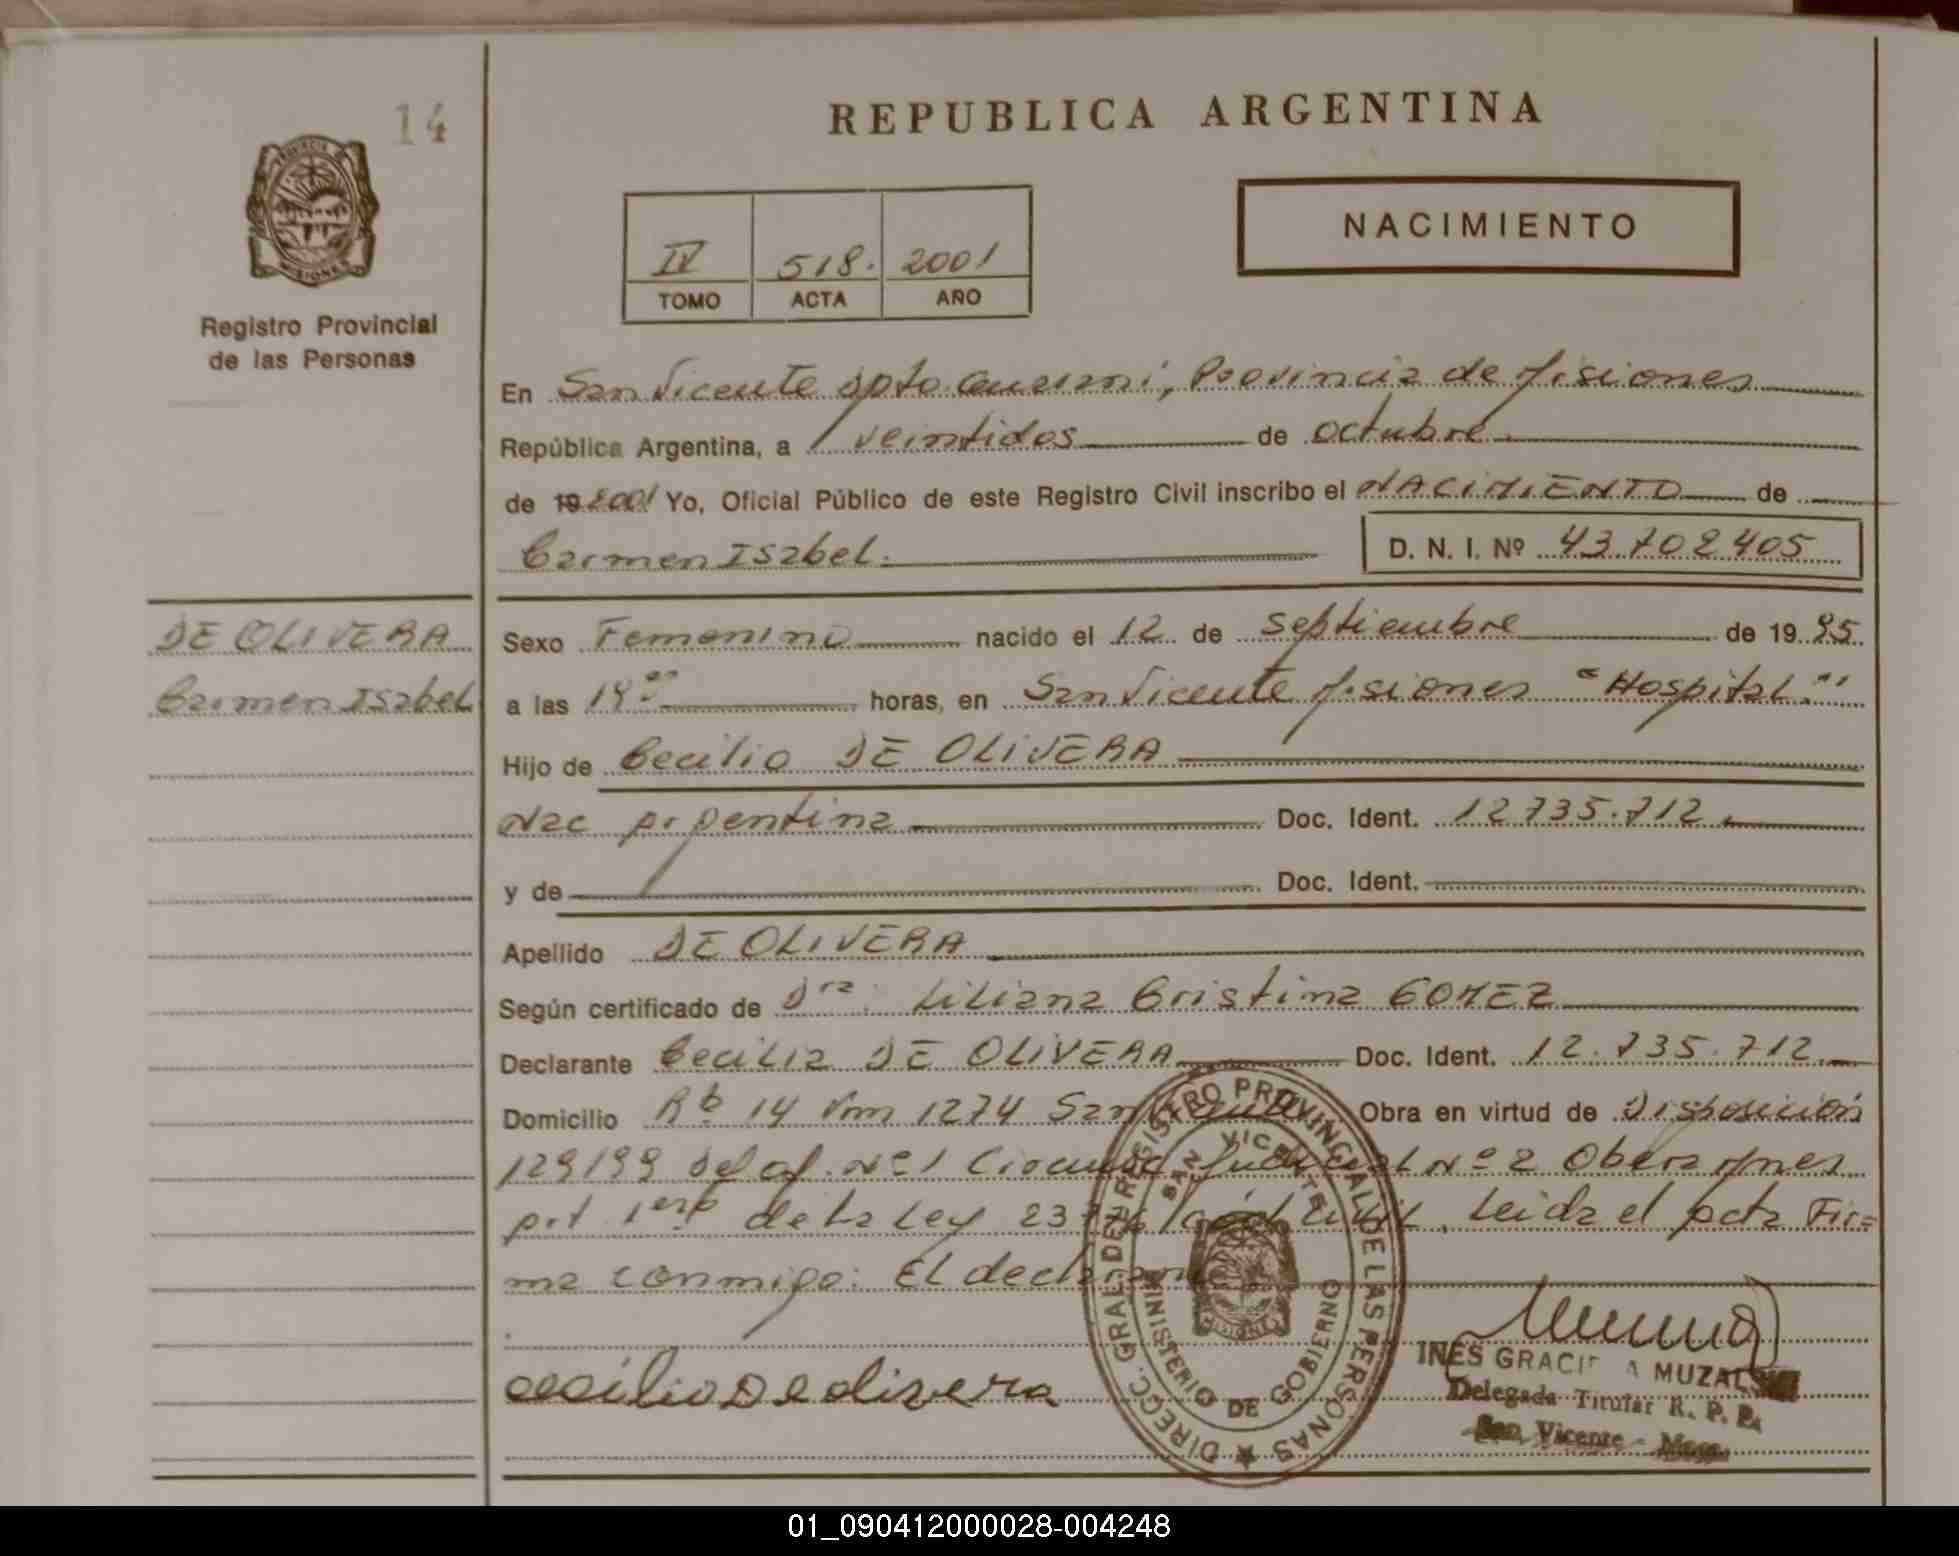 14
REPUBLICA ARGENTINA
PROVINCIA DE MISIONES
Registro Provincial
de las Personas
IV 518. 2001
TOMO ACTA AÑO
NACIMIENTO
En San Vicente dpto Guarani, Provincia de Misiones
República Argentina, a veintidos de octubre
de 19 2001 Yo, Oficial Público de este Registro Civil inscribo el NACIMIENTO de
Carmen Isabel. D. N. I. Nº 43.702405
DE OLIVERA
Carmen Isabel
Sexo Femenino nacido el 12 de septiembre de 19 95
a las horas, en San Vicente Misiones "Hospital."
Hijo de Cecilio DE OLIVERA
Nac Argentina Doc. Ident. 12735.712.
y de Doc. Ident.
Apellido DE OLIVERA
Según certificado de Dra: Liliana Cristina GOMEZ
Declarante Cecilia DE OLIVERA Doc. Ident. 12.735.712
Domicilio 14 1274 San Vicente Obra en virtud de Disposición
129199 del of. Nº1 Judicial Nº 2 Obera Mnes
art 1ero de la Ley 23 Leida el acta Fir=
ma conmigo: El declarante
Cecilio De olivera
DIRECC. GRAL. DEL REGISTRO PROVINCIAL DE LAS PERSONAS
SAN VICENTE
MINISTERIO DE GOBIERNO
MISIONES
INES GRACIE A MUZAL
Delegada Titular R. P. P.
San Vicente - Mnes.
01_090412000028-004248